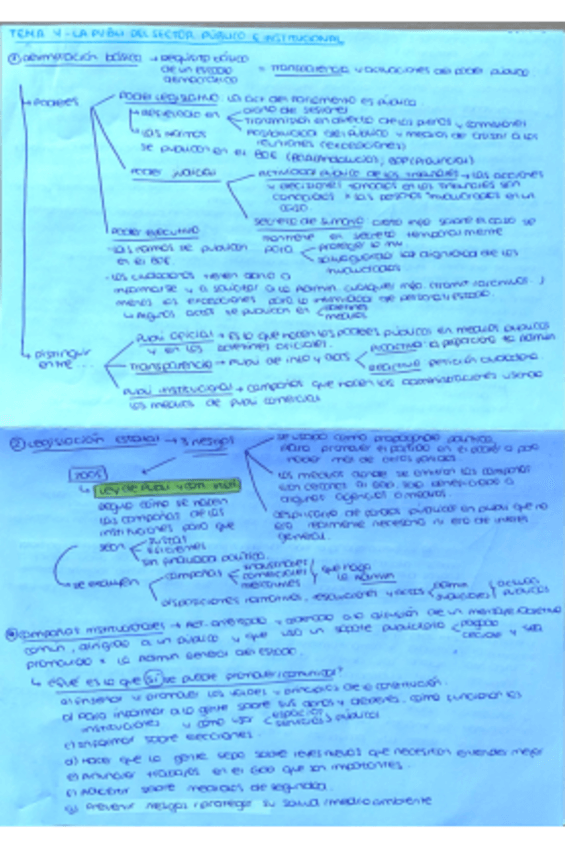 TEMA 4 - LA PUBLI DEL SECTOR PÚBLICO E INSTITUCIONAL
① delimitación básica → requisito básico
de un estado
democrático
= transparencia y actuaciones del poder público
→ PODERES
PODER LEGISLATIVO la act del parlamento es pública
diario de sesiones
transmisión en directo de los plenos y comisiones
→ las normas
se publican en el BOE
reuniones (excepciones)
PODER JUDICIAL
Actividad pública de los tribunales → las acciones
y decisiones tomadas en los tribunales son
conocidas x las personas involucradas en un
caso
secreto de sumario cierta info sobre el caso se
mantiene en secreto temporalmente
para
proteger la inv.
salvaguardar la dignidad de los
involucrados
PODER EJECUTIVO
- las normas se publican
en el BOE.
- los ciudadanos tienen dcho a
informarse y a solicitar a la admin cualquier info
menos las excepciones para la intimidad de personas y estado.
↳ Algunos actos se publican en
boletines
medios
→ Distinguir
entre ...
Publi oficial → es lo que hacen los poderes públicos en medios públicos
y en los boletines oficiales.
TRANSPARENCIA → publi de info y actos
proactiva: la proporciona la admin
reactiva: petición ciudadana.
Publi institucional → campañas que hacen las administraciones usando
los medios de publi comercial
② Legislación estatal → 3 riesgos
se usaba como propaganda política
para promover el partido en el poder o para
hablar mal de otros partidos.
los medios donde se emitían las campañas
eran cercanos al gob, solo beneficiaba a
algunas agencias o medios.
despilfarro de fondos públicos en publi que no
era realmente necesaria ni era de interés
general.
2005
↳ Ley de Publi y com. insti
regula cómo se hacen
las campañas de las
instituciones para que
sean
justas
eficientes
sin finalidad política.
→ se excluyen
campañas
industriales
comerciales
mercantiles
que haga
la admin
disposiciones normativas, resoluciones y actos
admin
judiciales
actos
públicos
campañas institucionales → Act. orientada y ordenada a la difusión de un mensaje objetivo
común, dirigido a un público y que usa un soporte publicitario
pagado
cedido
y sea
promovido x la Admin General del Estado.
↳ ¿Qué es lo que SÍ se puede promover/comunicar?
a) Enseñar y promover los valores y principios de la constitución.
b) Para informar a la gente sobre sus dchos y deberes, cómo funcionan las
instituciones y cómo usar
espacios
servicios
públicos
c) Informar sobre elecciones.
d) Hace que la gente sepa sobre leyes nuevas que necesitan entender mejor
e) Anunciar trabajos en el Gob que son importantes.
f) Advertir sobre medidas de seguridad.
g) Prevenir riesgos / proteger su salud / medioambiente